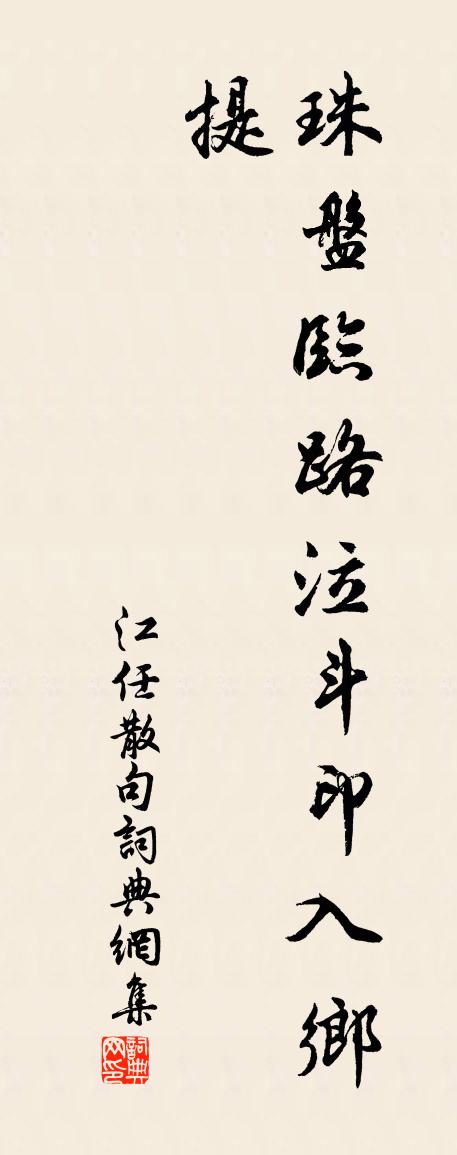 珠盤臨路泣斗印入鄉
提
江任散句詞典網集
詞典
网印